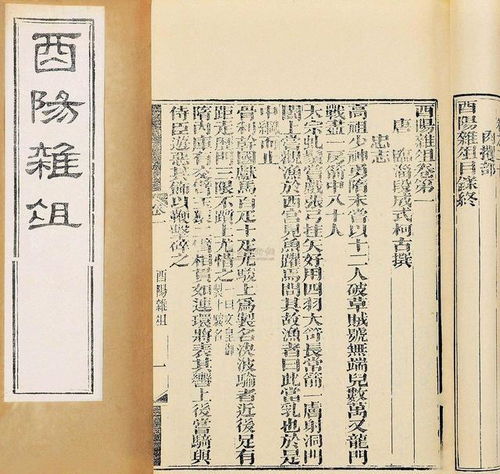 肉攫部
酉陽雜俎目錄終
酉陽雜俎卷第一
唐 臨淄段成式柯古撰
忠志
高祖少神勇隋末嘗以十二人破草賊號無端兒數萬又龍門
戰盡一房箭中八十人
太宗虬鬚嘗戲張弓挂矢好用四羽大笴長常箭一膚射洞門
闔上嘗觀漁於西宮見魚躍焉問其故漁者曰此當乳也於是
中網而止
骨利幹國獻馬百疋十疋尤駿上爲製名決波騟者近後足有
距走歷門三限不躓上尤惜之 一曰文皇 製十
隋內庫有交臂玉猿二臂相貫如連環將表其轡上後嘗騎與
侍臣遊惡其飾以鞭擊碎之
酉陽雜俎
酉陽雜俎